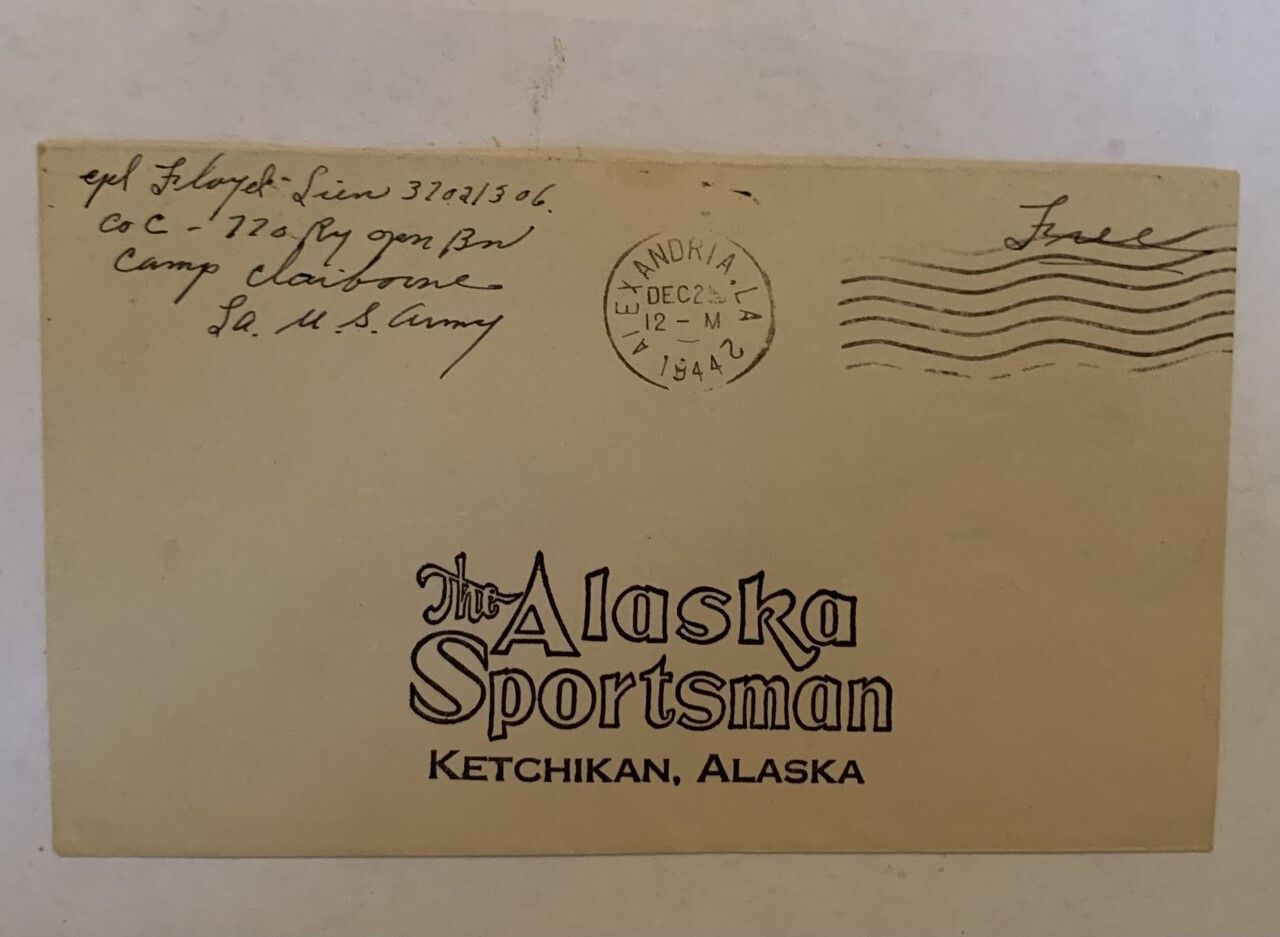 cpl Floyd Lien 37021306.
Co C - 770 Ry opn Bn
Camp Claiborne
La. U.S. Army
ALEXANDRIA, LA
DEC 2
12 - M
1944
2
Free
The Alaska
Sportsman
KETCHIKAN, ALASKA